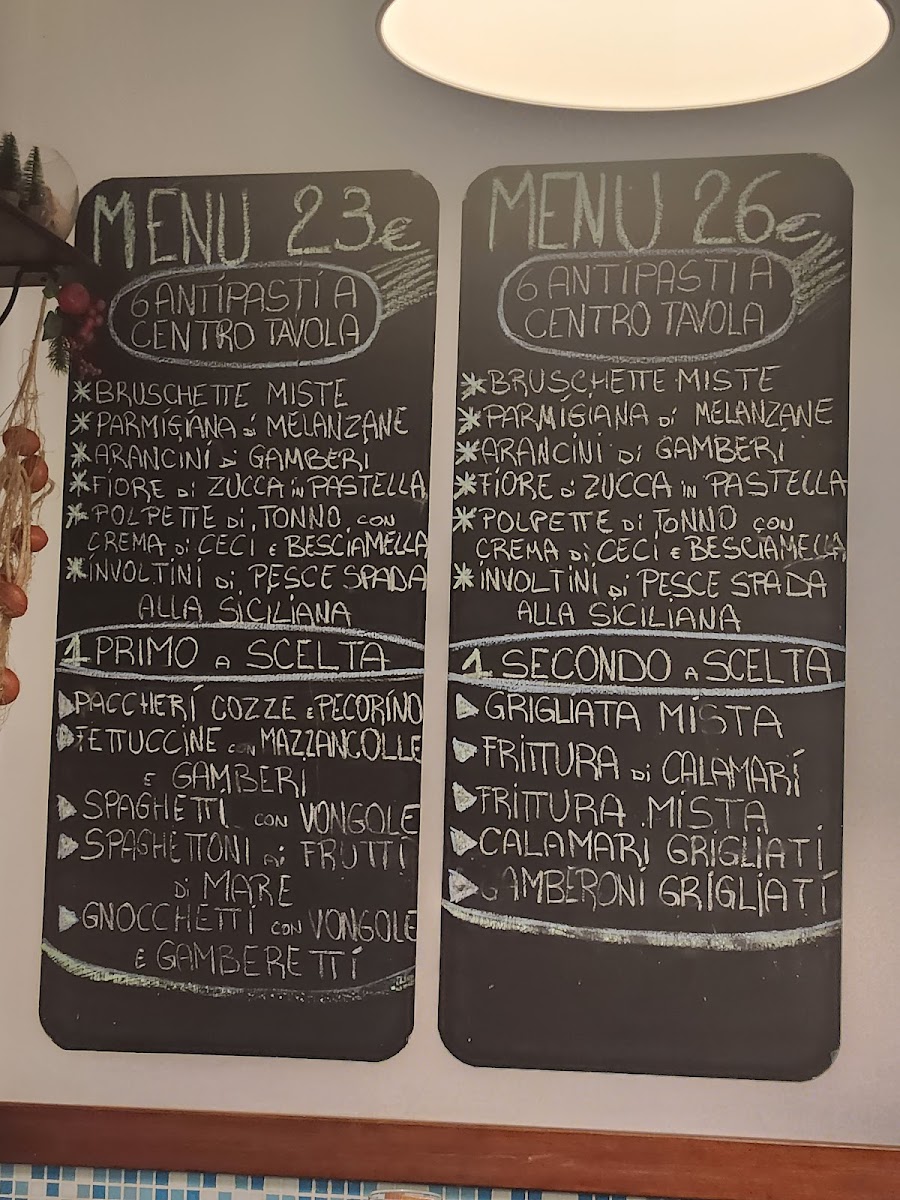 MENU 23€
6 ANTIPASTI A
CENTRO TAVOLA
*BRUSCHETTE MISTE
*PARMIGIANA di MELANZANE
*ARANCINI di GAMBERI
*FIORE di ZUCCA in PASTELLA
*POLPETTE di TONNO con
CREMA di CECI e BESCIAMELLA
*INVOLTINI di PESCE SPADA
ALLA SICILIANA
1 PRIMO A SCELTA
PACCHERI COZZE e PECORINO
FETTUCCINE con MAZZANCOLLE
E GAMBERI
SPAGHETTI con VONGOLE
SPAGHETTONI ai FRUTTI
di MARE
GNOCCHETTI con VONGOLE
E GAMBERETTI
MENU 26€
6 ANTIPASTI A
CENTRO TAVOLA
*BRUSCHETTE MISTE
*PARMIGIANA di MELANZANE
*ARANCINI di GAMBERI
*FIORE di ZUCCA in PASTELLA
*POLPETTE di TONNO con
CREMA di CECI e BESCIAMELLA
*INVOLTINI di PESCE SPADA
ALLA SICILIANA
1 SECONDO A SCELTA
GRIGLIATA MISTA
FRITTURA di CALAMARI
FRITTURA MISTA
CALAMARI GRIGLIATI
GAMBERONI GRIGLIATI